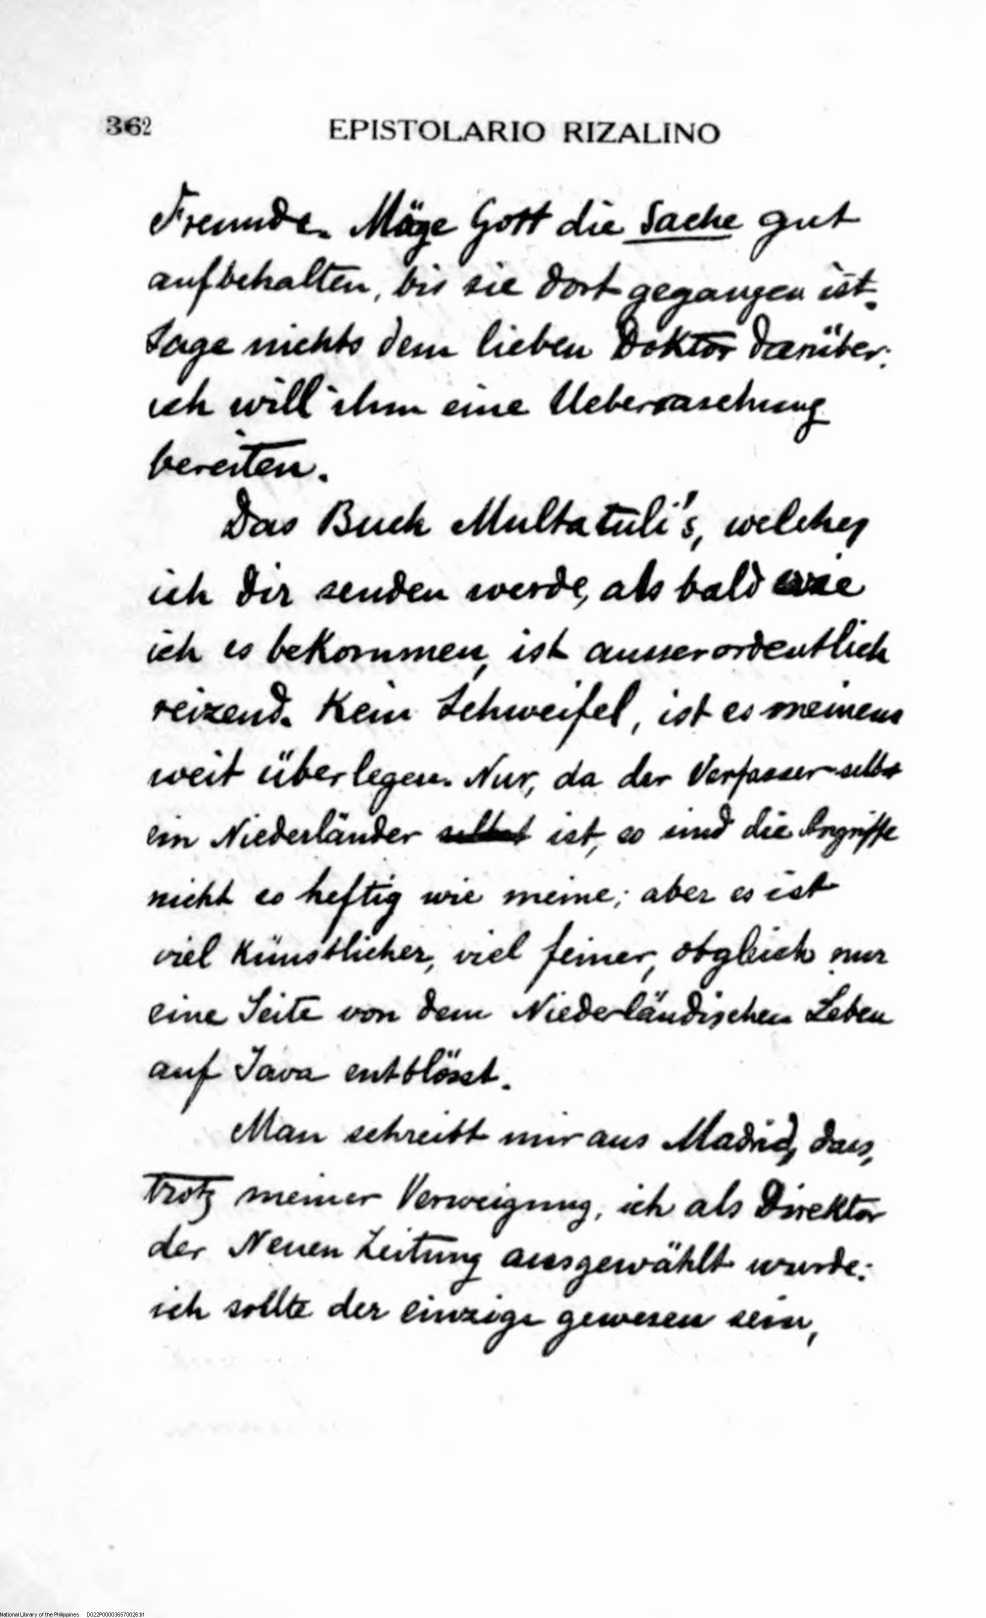 362 EPISTOLARIO RIZALINO
Freunde. Möge Gott die Sache gut
aufbehalten, bis sie dort gegangen ist.
Sage nichts dem lieben Doktor darüber;
ich will ihm eine Ueberraschung
bereiten.
Das Buch Multatuli's, welches
ich dir senden werde, als bald wie
ich es bekommen, ist ausserordentlich
reizend. Kein Schweifel, ist es meinem
weit überlegen. Nur, da der Verfasser selbst
ein Niederländer selbst ist, so sind die Angriffe
nicht so heftig wie meine; aber es ist
viel Künstlicher, viel feiner, obgleich nur
eine Seite von dem Niederländischen Leben
auf Java entblösst.
Man schreibt mir aus Madrid, dass,
trotz meiner Verweignung, ich als Direktor
der Neuen Zeitung ausgewählt wurde:
ich sollte der einzige gewesen sein,
National Library of the Philippines